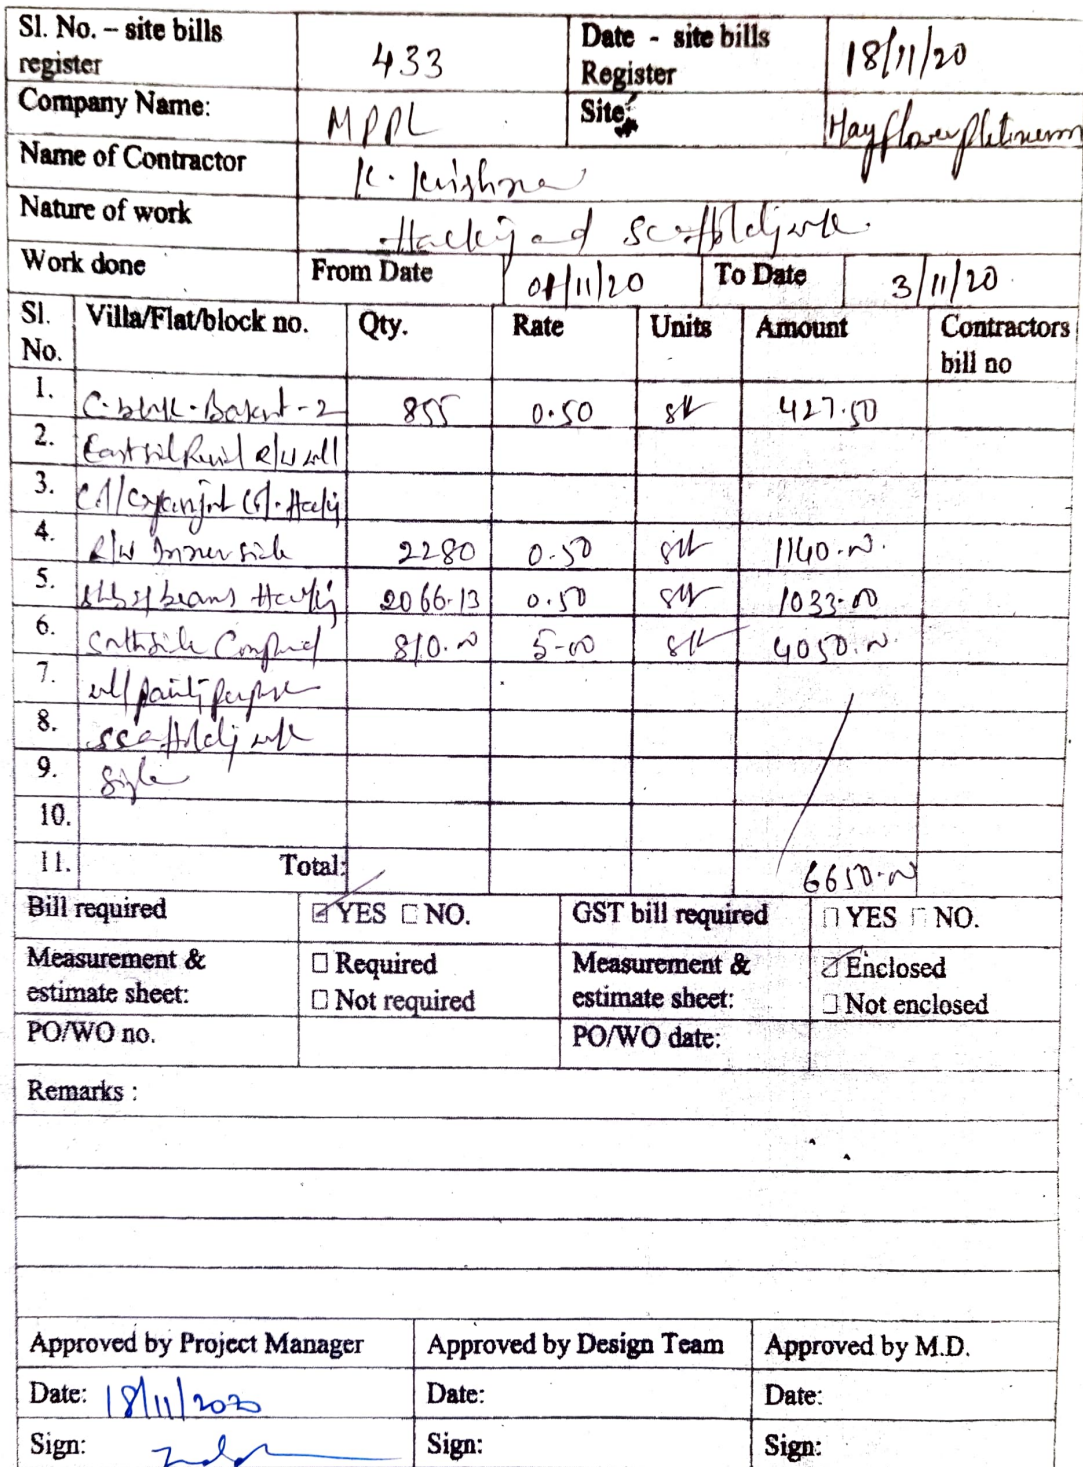 Sl. No. – site bills register 433 Date - site bills Register 18/11/20
Company Name: MPPL Site: Mayflower platinum
Name of Contractor K. Krishna
Nature of work Hacking and scaffolding work.
Work done From Date 01/11/20 To Date 3/11/20
Sl. No. Villa/Flat/block no. Qty. Rate Units Amount Contractors bill no
1. C- 2 855 0.50 sft 427.50
2. East R/W wall
3. Hacking
4. R/W Inner side 2280 0.50 sft 1140.00
5. beams Hacking 2066.13 0.50 sft 1033.00
6. South side Compound 810.00 5-00 sft 4050.00
7. wall painting purpose
8. scaffolding work
9. Single
10.
11. Total: 6650.00
Bill required ☑ YES ☐ NO. GST bill required ☐ YES ☐ NO.
Measurement & estimate sheet: ☐ Required ☐ Not required Measurement & estimate sheet: ☑ Enclosed ☐ Not enclosed
PO/WO no. PO/WO date:
Remarks :
Approved by Project Manager Approved by Design Team Approved by M.D.
Date: 18/11/2020 Date: Date:
Sign: Sign: Sign: